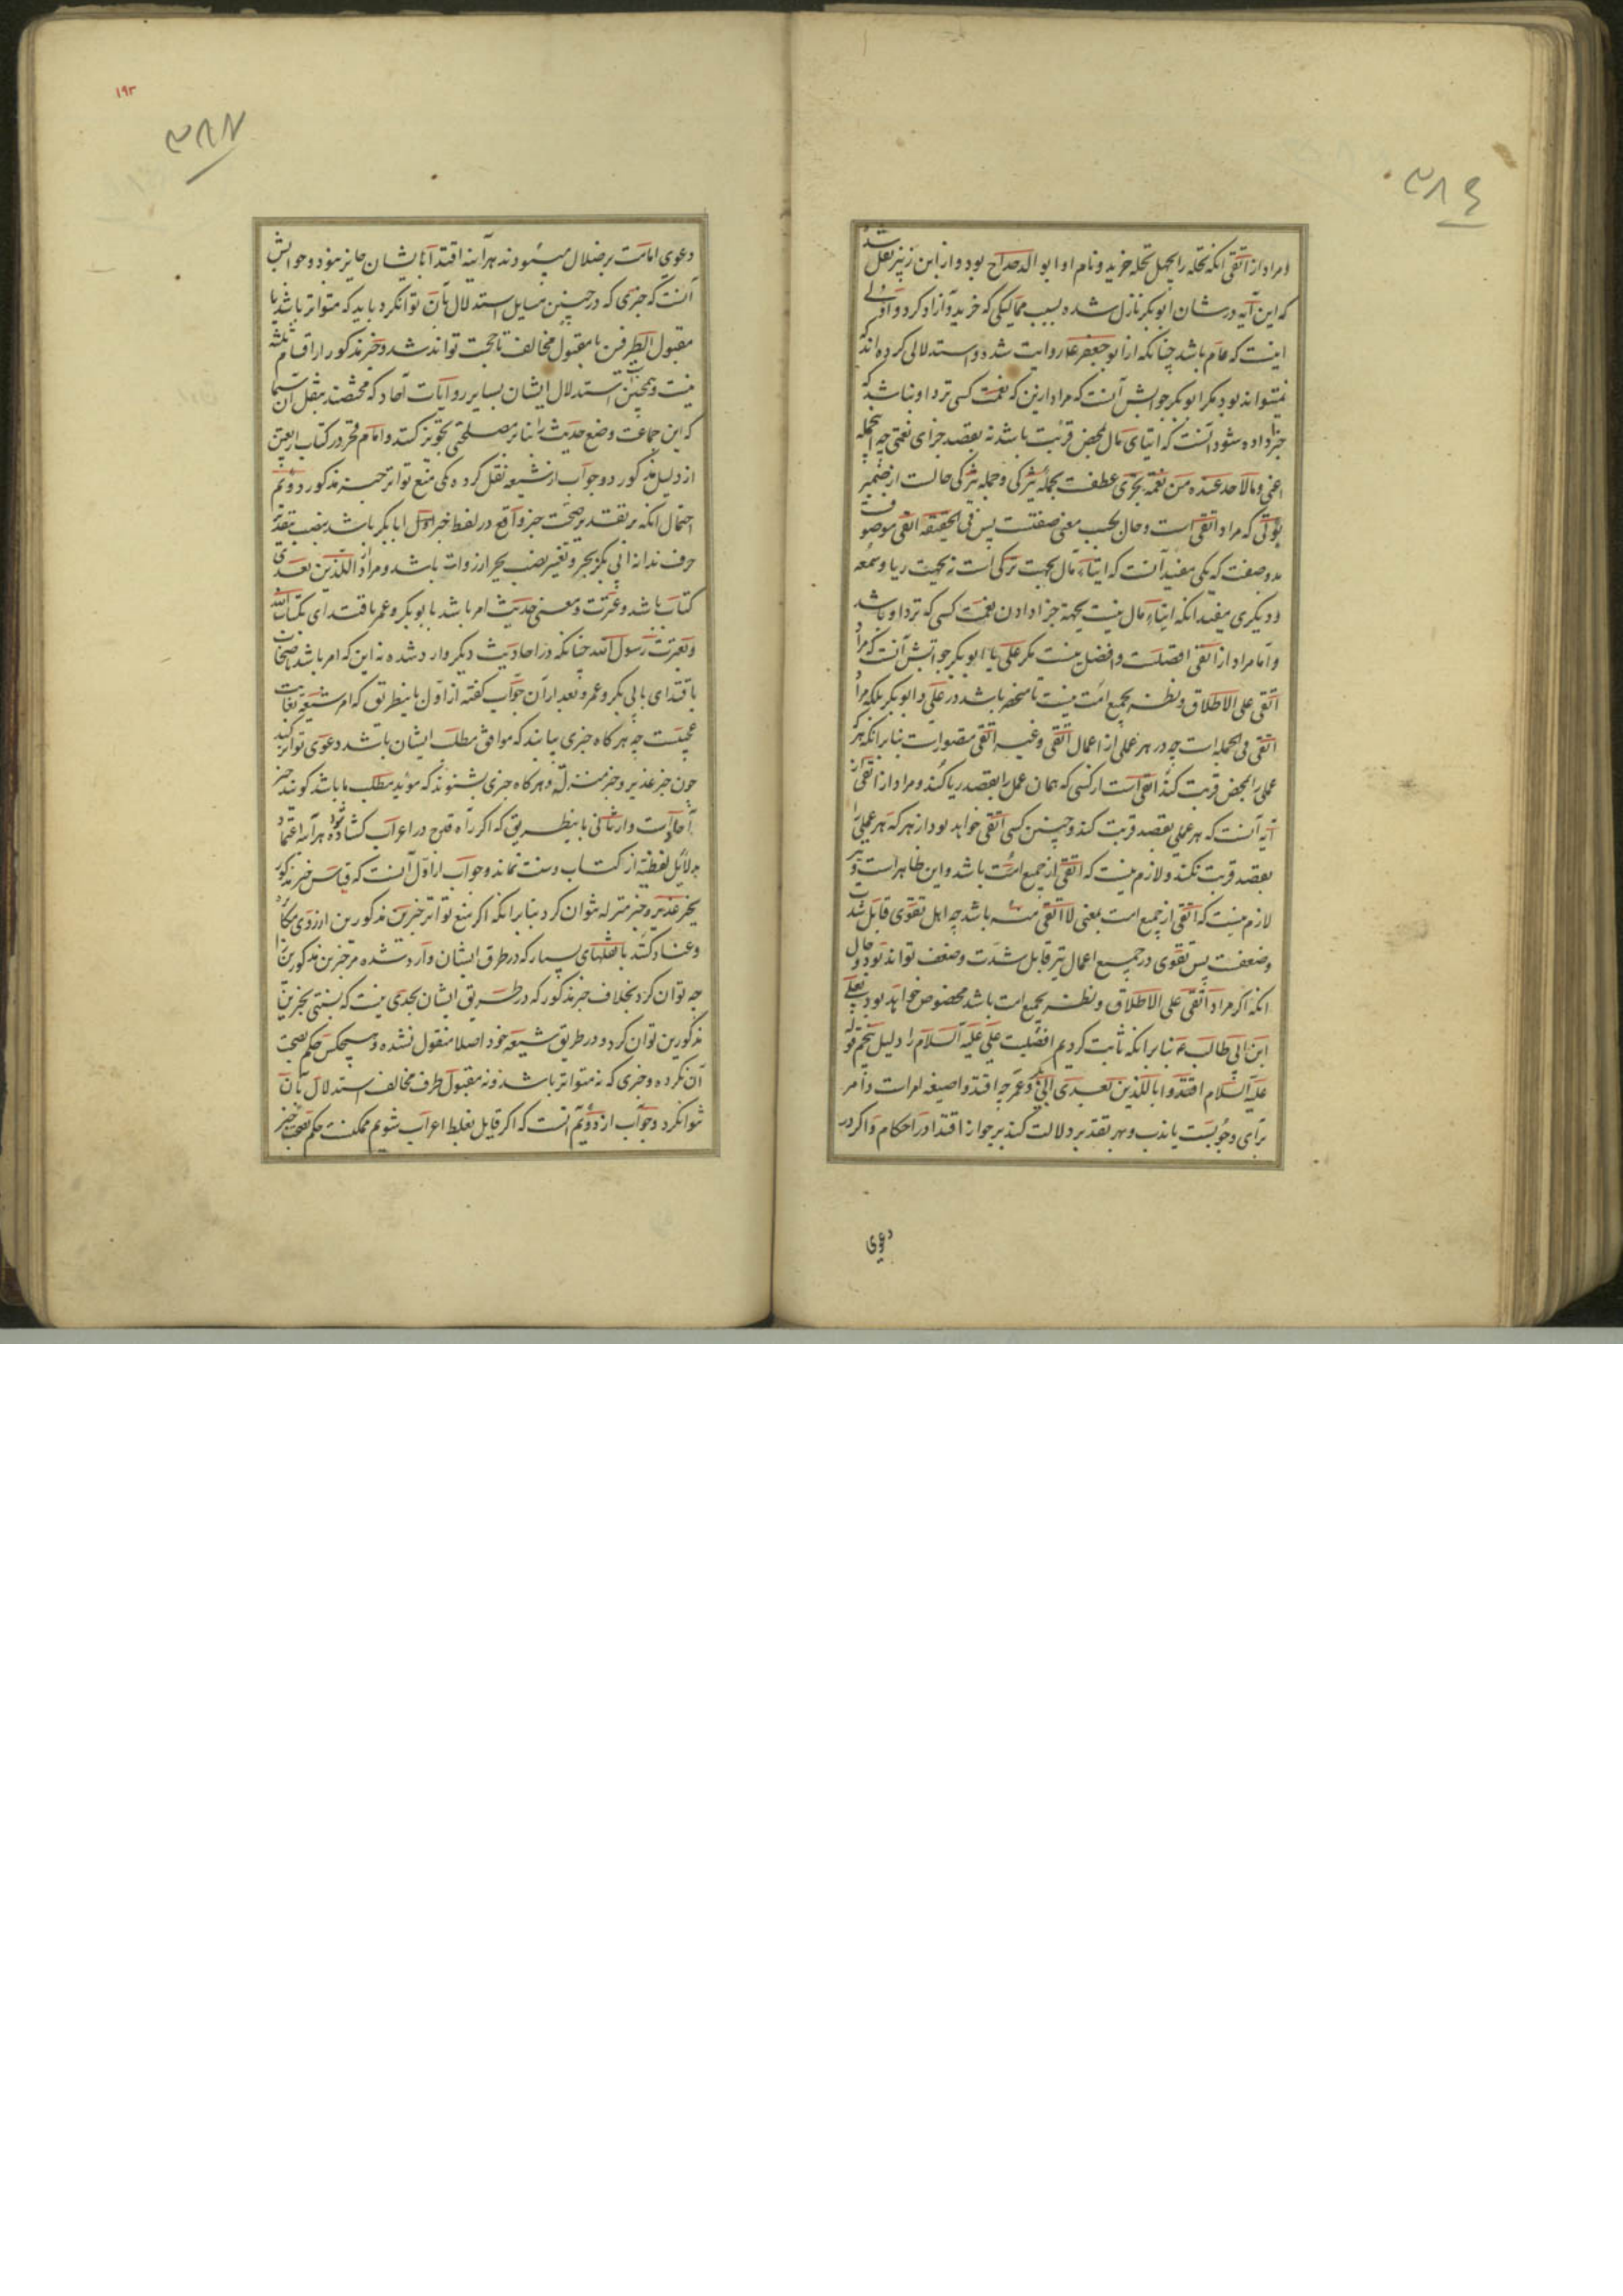 ۳۸۶
و مراد از اتقی آنکه نخله را بچهل نخله خرید و نام او ابو الدحداح بود و از ابن زبیر نقل شد
که این آیه در شان ابوبکر نازل شده بسبب ممالیکی که خرید و آزاد کرد و اولی
اینست که عام باشد چنانکه از ابو جعفر ع روایت شد و استدلالی کرده اند که
نمیتواند بود مگر ابوبکر جوابش آنست که مراد ازین که نعمت کسی نزد او نباشد که
جزا داده شود آنست که ایتای مال محض قربت باشد نه بقصد جزای نعمتی چه جمله
اعنی و مالاحد عنده من نعمة تجزی عطفست بجمله یتزکی و جمله یتزکی حالست از ضمیر
یؤتی که مراد اتقی است و حال بحسب معنی صفتست پس فی الحقیقه اتقی موصوف
بدو صفت که یکی مفید آنست که ایتاء مال بجهت تزکی است نه بجهت ریا و سمعه
و دیگری مفید آنکه ایتاء مال نیست بجهة جزا دادن نعمت کسی که نزد او باشد
و اما مراد از اتقی افضلست و افضل نیست مگر علی یا ابوبکر جوابش آنست که مراد
اتقی علی الاطلاق و نظر بجمیع امت نیست تا منحصر باشد در علی و ابوبکر بلکه مراد
اتقی فی الجمله است چه در هر عملی از اعمال اتقی و غیر اتقی متصور است بنابر آنکه هر که
عملی را محض قربت کند اتقی است از کسی که همان عمل را بقصد ریا کند و مراد از اتقی از
آیه آنست که هر عملی بقصد قربت کند و چنین کسی اتقی خواهد بود از هر که هر عملی را
بقصد قربت نکند و لازم نیست که اتقی از جمیع امت باشد و این ظاهر است و نیز
لازم نیست که اتقی از جمیع امت بمعنی لا اتقی منه باشد چه اهل تقوی قابل شدت
و ضعفست پس تقوی در جمیع اعمال نیز قابل شدت و ضعف تواند بود و حال
آنکه اگر مراد اتقی علی الاطلاق و نظر بجمیع امت باشد مخصوص خواهد بود بعلی
ابن ابی طالب ع بنابر آنکه ثابت کردیم افضلیت علی علیه السلام را دلیل پنجم قوله
علیه السلام اقتدوا باللذین بعدی ابی بکر و عمر چه اقتدوا صیغه امر است و امر
برای وجوبست یا ندب و بهر تقدیر دلالت کند بر جواز اقتدا در احکام و اگر در
دعوی
۱۹۳
۳۸۷
دعوی امامت بر ضلال میبودند هر آینه اقتدا بایشان جایز نبود و جوابش
آنست که خبری که در چنین مسایل استدلال بآن توانکرد باید که متواتر باشد یا
مقبول الطرفین یا مقبول مخالف تا حجت تواند شد و خبر مذکور از اقسام ثلثه
نیست و همچنین استدلال ایشان بسایر روایات آحاد که مختصند بنقل آن سیما
که این جماعت وضع حدیث را بنابر مصلحتی تجویز کنند و امام فخر در کتاب اربعین
از دلیل مذکور دو جواب از شیعه نقل کرده یکی منع تواتر خبر مذکور دوم
احتمال آنکه بر تقدیر صحت خبر واقع در لفظ خبر اول ابا بکر باشد بنصب بتقدیر
حرف ندا نه ابی بکر بجر و تغییر نصب بجر از روات باشد و مراد از اللذین بعدی
کتاب باشد و عترت و معنی حدیث امر باشد بابوبکر و عمر باقتدای بکتاب الله
و بعترت رسول الله چنانکه در احادیث دیگر وارد شده نه این که امر باشد اصحاب
باقتدای بابی بکر و عمر و بعد از آن جواب گفته از اول باینطریق که امر شیعه بغایت
عجیبست چه هرگاه خبری بیابند که موافق مطلب ایشان باشد دعوی تواتر کنند
چون خبر غدیر و خبر منزله و هرگاه خبری بشنوند که مؤید مطلب ما باشد گویند خبر
آحاد است و از ثانی باینطریق که اگر راه قدح در اعراب گشاده شود هر آینه اعتماد
بدلایل لفظیه از کتاب و سنت نماند و جواب از اول آنست که قیاس خبر مذکور
بخبر غدیر و خبر منزله نتوان کرد بنابر آنکه اگر منع تواتر خبرین مذکورین از روی مکابره
و عناد کنند با نقلهای بسیار که در طرق ایشان وارد شده مر خبرین مذکورین را
چه توان کرد بخلاف خبر مذکور که در طریق ایشان بحدی نیست که نسبتی بخبرین
مذکورین توان کرد و در طریق شیعه خود اصلا منقول نشده و هیچکس حکم بصحت
آن نکرده و خبری که نه متواتر باشد و نه مقبول طرف مخالف استدلال بآن
نتوانکرد و جواب از دویم آنست که اگر قایل بغلط اعراب شویم ممکنست حکم بصحت خبر